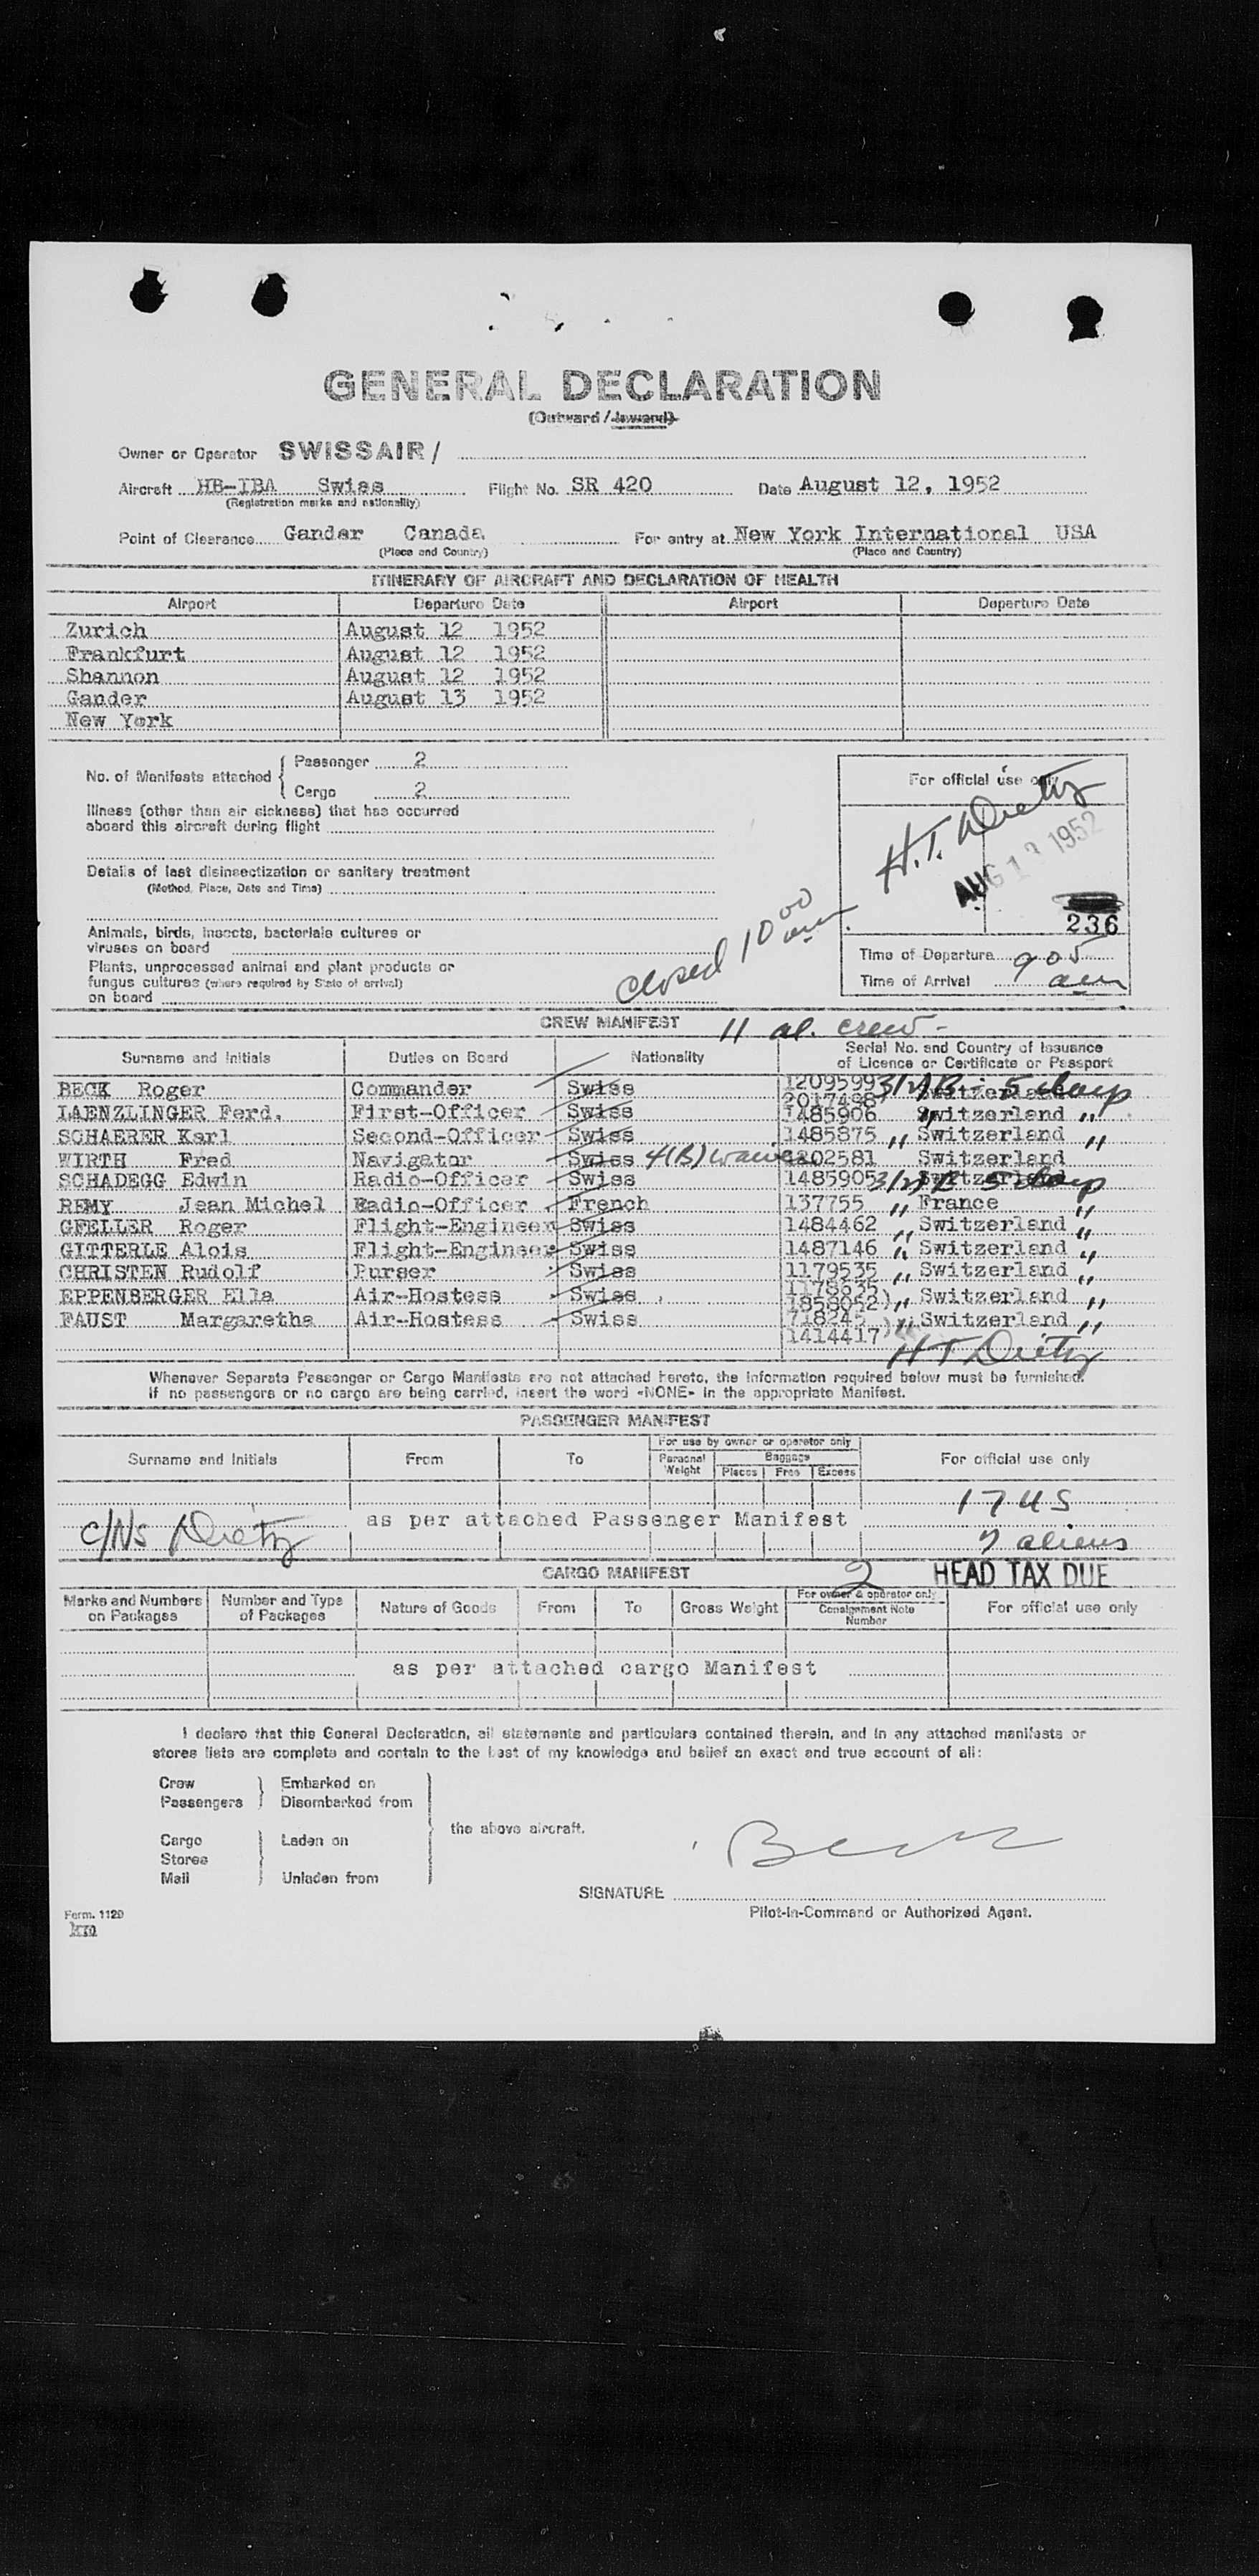 GENERAL DECLARATION
(Outward / Inward)
Owner or Operator SWISSAIR /
Aircraft HB-IBA Swiss Flight No. SR 420 Date August 12, 1952
(Registration marks and nationality)
Point of Clearance Gander Canada For entry at New York International USA
(Place and Country) (Place and Country)
ITINERARY OF AIRCRAFT AND DECLARATION OF HEALTH
Airport Departure Date Airport Departure Date
Zurich August 12 1952
Frankfurt August 12 1952
Shannon August 12 1952
Gander August 13 1952
New York
No. of Manifests attached { Passenger 2
Cargo 2
Illness (other than air sickness) that has occurred
aboard this aircraft during flight
Details of last disinsectization or sanitary treatment
(Method, Place, Date and Time)
Animals, birds, insects, bacteriale cultures or
viruses on board
Plants, unprocessed animal and plant products or
fungus cultures (where required by State of arrival)
on board
closed 10 00 am
For official use only
H.T. Dietz
AUG 13 1952
236
Time of Departure 9 05
Time of Arrival am
CREW MANIFEST 11 al. crew -
Surname and Initials Duties on Board Nationality Serial No. and Country of Issuance
of Licence or Certificate or Passport
BECK Roger Commander Swiss 1209599
2017488
LAENZLINGER Ferd. First-Officer Swiss 1485906 Switzerland "
SCHAERER Karl Second-Officer Swiss 1485875 " Switzerland "
WIRTH Fred Navigator Swiss 4(B) waiver 1202581 Switzerland
SCHADEGG Edwin Radio-Officer Swiss 1485905 Switzerland
REMY Jean Michel Radio-Officer French 137755 " France "
GFELLER Roger Flight-Engineer Swiss 1484462 " Switzerland "
GITTERLE Alois Flight-Engineer Swiss 1487146 " Switzerland "
CHRISTEN Rudolf Purser Swiss 1179535 " Switzerland "
EPPENBERGER Ella Air-Hostess Swiss 1178635
1858052) " Switzerland "
FAUST Margaretha Air-Hostess Swiss 718245 ) " Switzerland "
1414417)
H T Dietz
Whenever Separate Passenger or Cargo Manifests are not attached hereto, the information required below must be furnished.
If no passengers or no cargo are being carried, insert the word «NONE» in the appropriate Manifest.
PASSENGER MANIFEST
Surname and Initials From To For use by owner or operator only For official use only
Personal Weight Baggage
Pieces Free Excess
17 US
C/Ns Dietz as per attached Passenger Manifest
7 aliens
CARGO MANIFEST 2 HEAD TAX DUE
Marks and Numbers on Packages Number and Type of Packages Nature of Goods From To Gross Weight For owner & operator only Consignment Note Number For official use only
as per attached cargo Manifest
I declare that this General Declaration, all statements and particulars contained therein, and in any attached manifests or
stores lists are complete and contain to the best of my knowledge and belief an exact and true account of all:
Crew } Embarked on
Passengers Disembarked from
the above aircraft.
Cargo } Laden on
Stores
Mail Unladen from
Beck
SIGNATURE
Pilot-in-Command or Authorized Agent.
Form. 1129